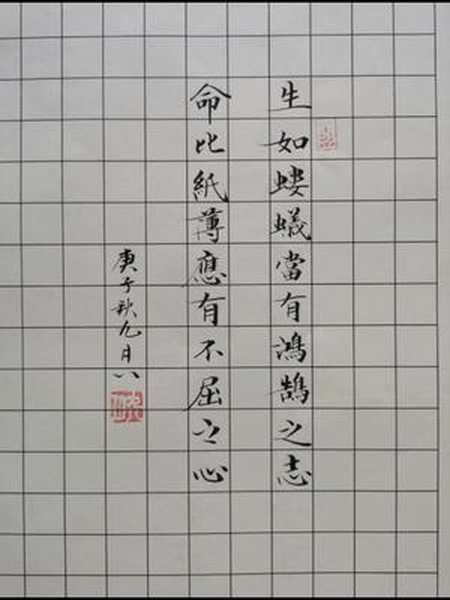 生如螻蟻當有鴻鵠之志
命比紙薄應有不屈之心
庚子秋九月八